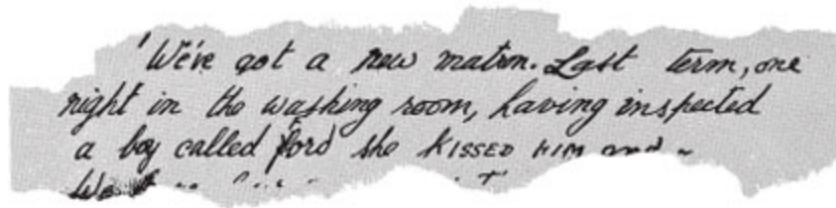 'We've got a new matron. Last term, one
night in the washing room, having inspected
a boy called Ford she KISSED HIM and